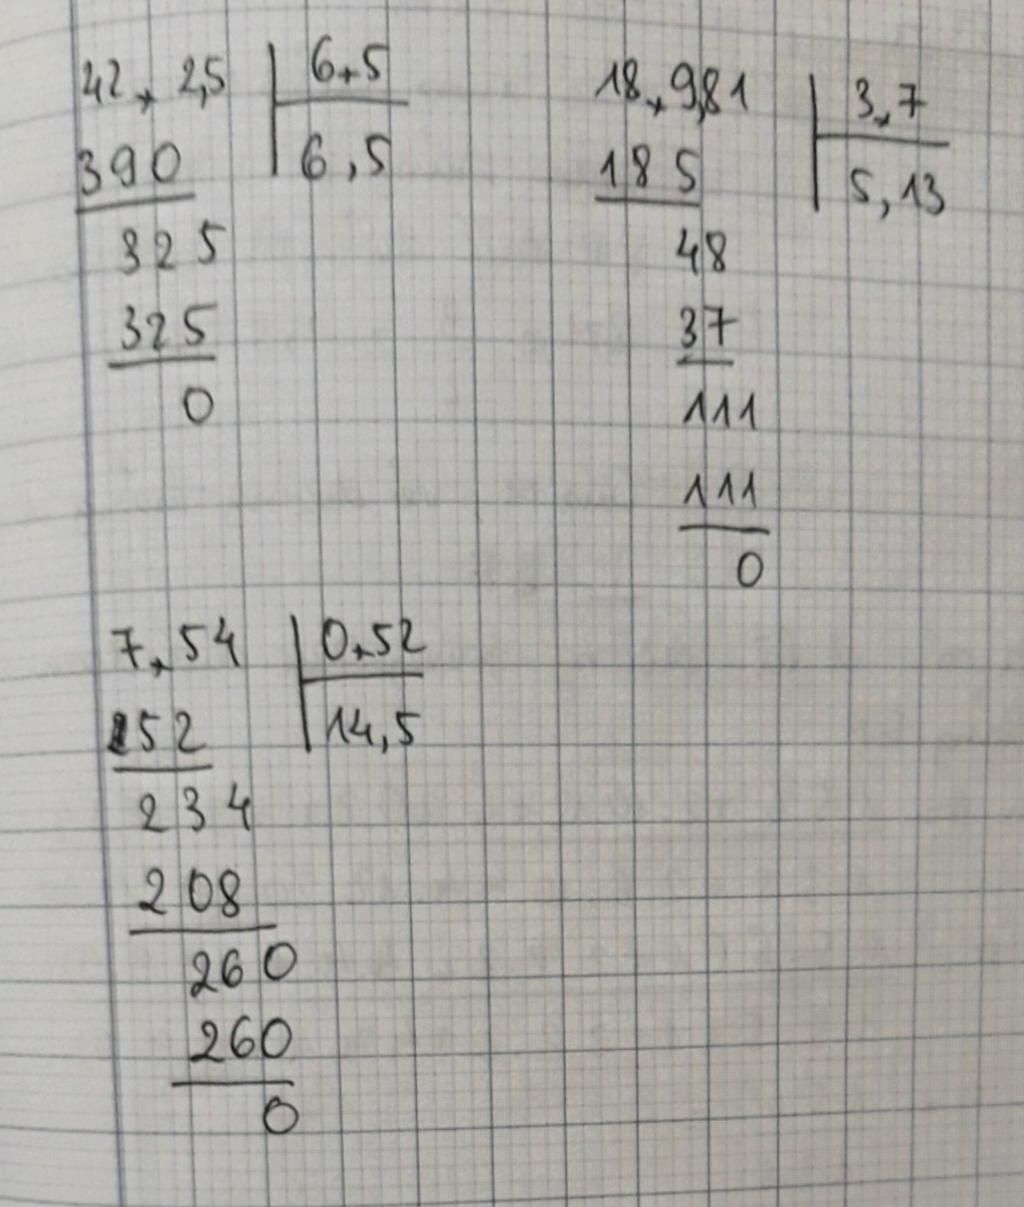 42, 2,5 | 6,5
390 | 6,5
325
325
0
18,9,81 | 3,7
185 | 5,13
48
37
111
111
0
7,54 | 0,52
52 | 14,5
234
208
260
260
0